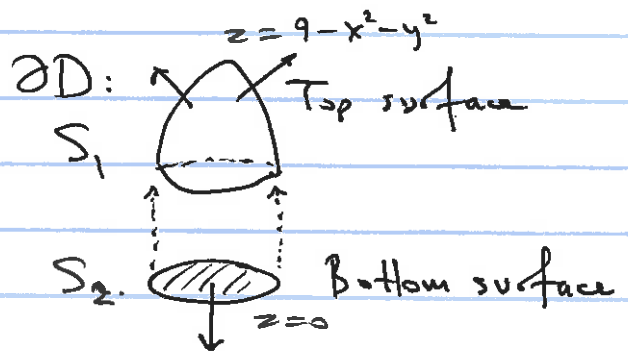 z = 9 - x² - y²
∂D:
Top surface
S₁
S₂.
Bottom surface
z=0